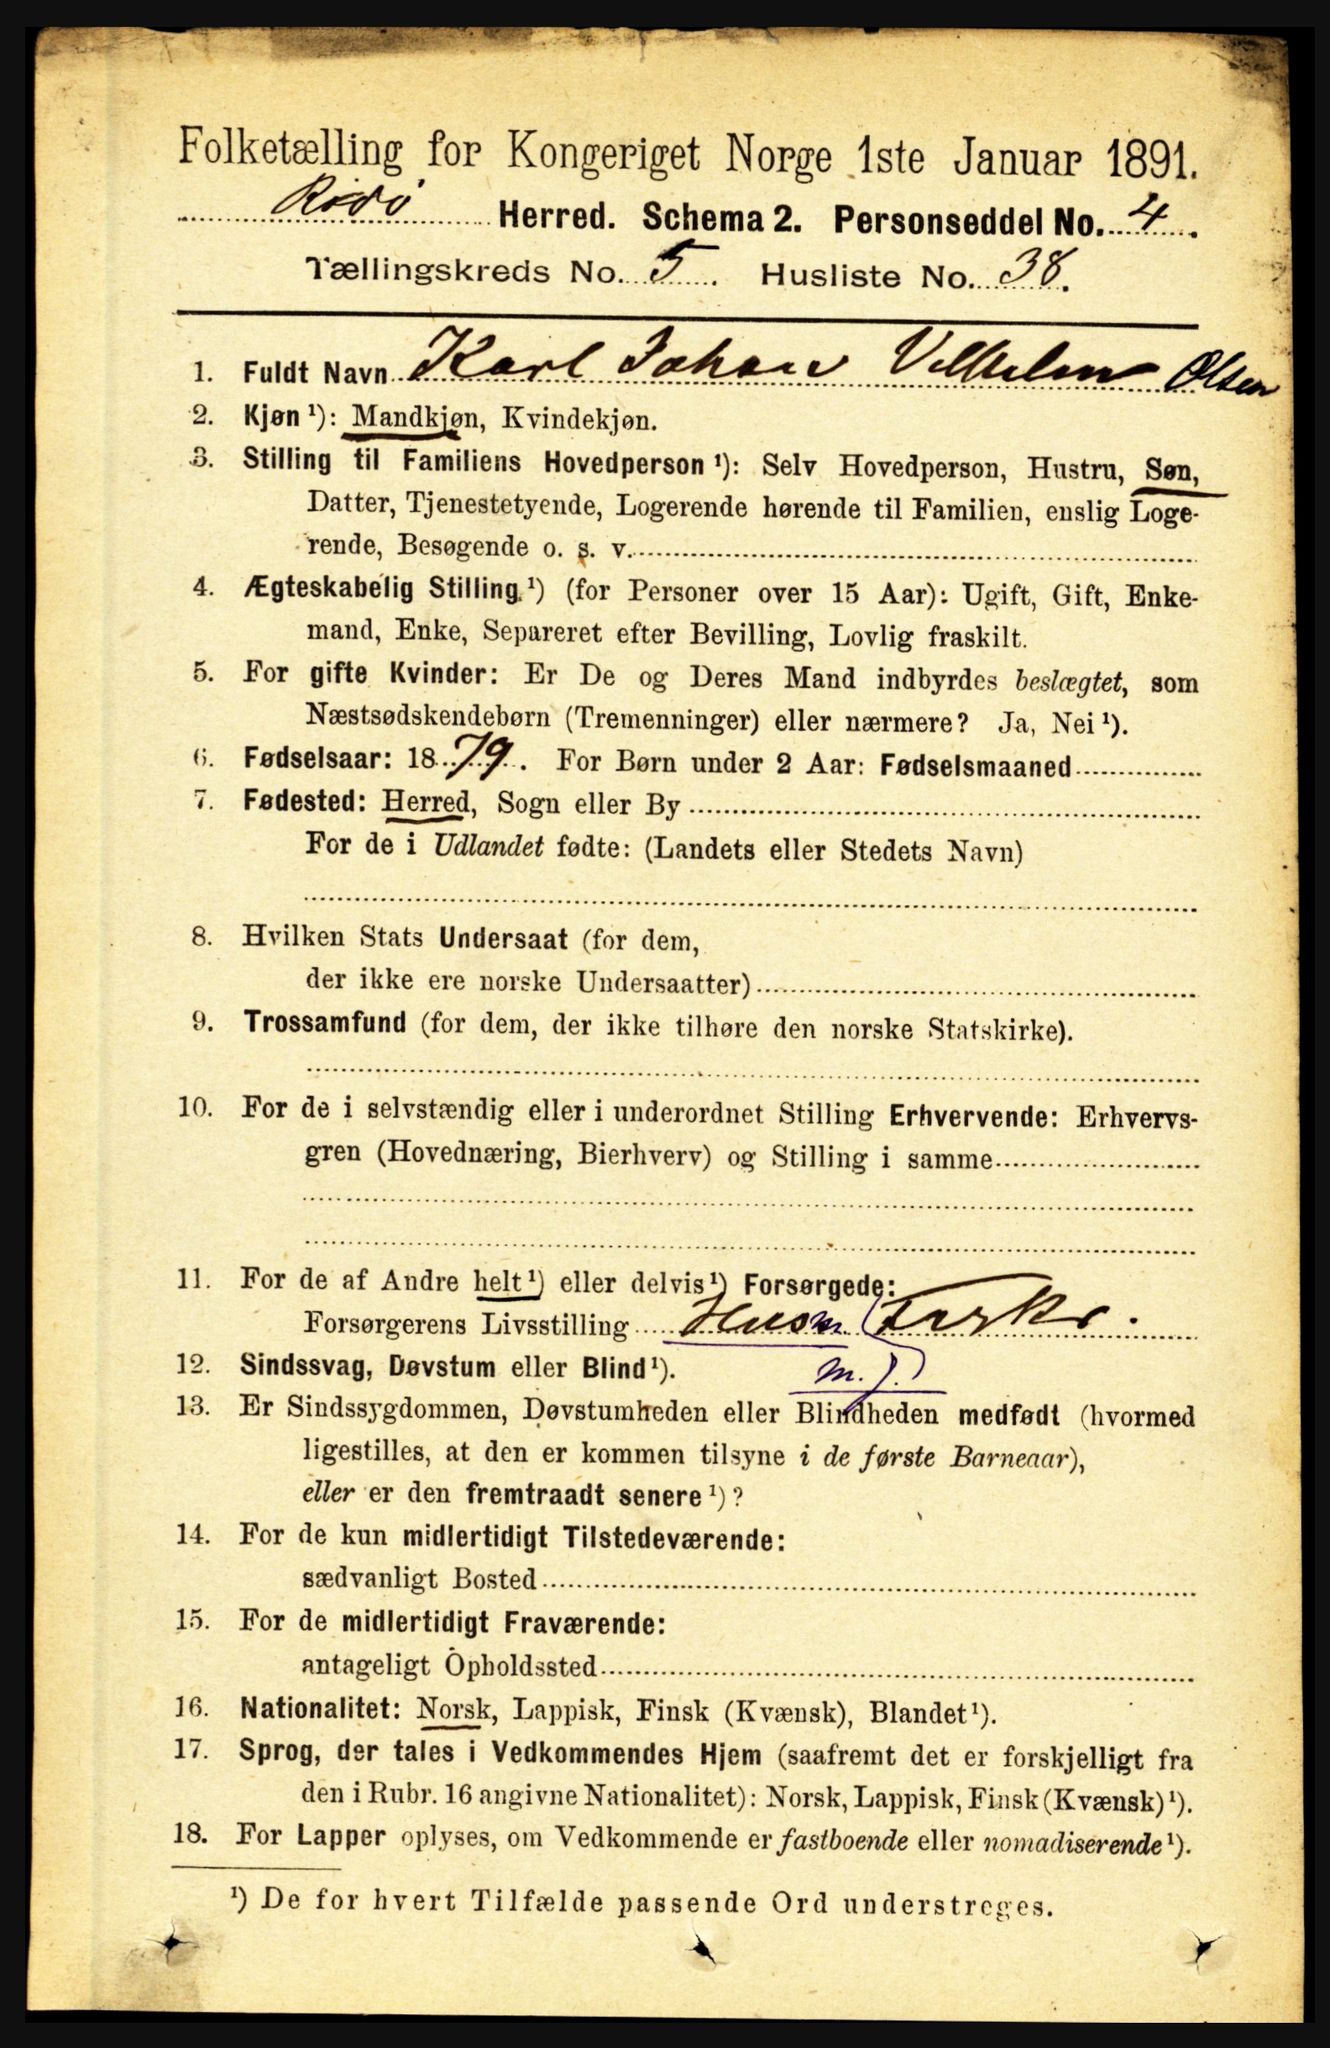 Folketælling for Kongeriget Norge 1ste Januar 1891.
Rødø Herred. Schema 2. Personseddel No. 4.
Tællingskreds No. 5. Husliste No. 38.
1. Fuldt Navn Karl Johan Vilhelm Olsen
2. Kjøn ¹): Mandkjøn, Kvindekjøn.
3. Stilling til Familiens Hovedperson ¹): Selv Hovedperson, Hustru, Søn,
Datter, Tjenestetyende, Logerende hørende til Familien, enslig Loge-
rende, Besøgende o. s. v.
4. Ægteskabelig Stilling.¹) (for Personer over 15 Aar): Ugift, Gift, Enke-
mand, Enke, Separeret efter Bevilling, Lovlig fraskilt.
5. For gifte Kvinder: Er De og Deres Mand indbyrdes beslægtet, som
Næstsødskendebørn (Tremenninger) eller nærmere? Ja, Nei ¹).
6. Fødselsaar: 1879. For Børn under 2 Aar: Fødselsmaaned
7. Fødested: Herred, Sogn eller By
For de i Udlandet fødte: (Landets eller Stedets Navn)
8. Hvilken Stats Undersaat (for dem,
der ikke ere norske Undersaatter)
9. Trossamfund (for dem, der ikke tilhøre den norske Statskirke).
10. For de i selvstændig eller i underordnet Stilling Erhvervende: Erhvervs-
gren (Hovednæring, Bierhverv) og Stilling i samme
11. For de af Andre helt ¹) eller delvis ¹) Forsørgede:
Forsørgerens Livsstilling Husm (Fisker.
m. j.)
12. Sindssvag, Døvstum eller Blind ¹).
13. Er Sindssygdommen, Døvstumheden eller Blindheden medfødt (hvormed
ligestilles, at den er kommen tilsyne i de første Barneaar),
eller er den fremtraadt senere ¹)?
14. For de kun midlertidigt Tilstedeværende:
sædvanligt Bosted
15. For de midlertidigt Fraværende:
antageligt Opholdssted
16. Nationalitet: Norsk, Lappisk, Finsk (Kvænsk), Blandet ¹).
17. Sprog, der tales i Vedkommendes Hjem (saafremt det er forskjelligt fra
den i Rubr. 16 angivne Nationalitet): Norsk, Lappisk, Finsk (Kvænsk) ¹).
18. For Lapper oplyses, om Vedkommende er fastboende eller nomadiserende ¹).
¹) De for hvert Tilfælde passende Ord understreges.